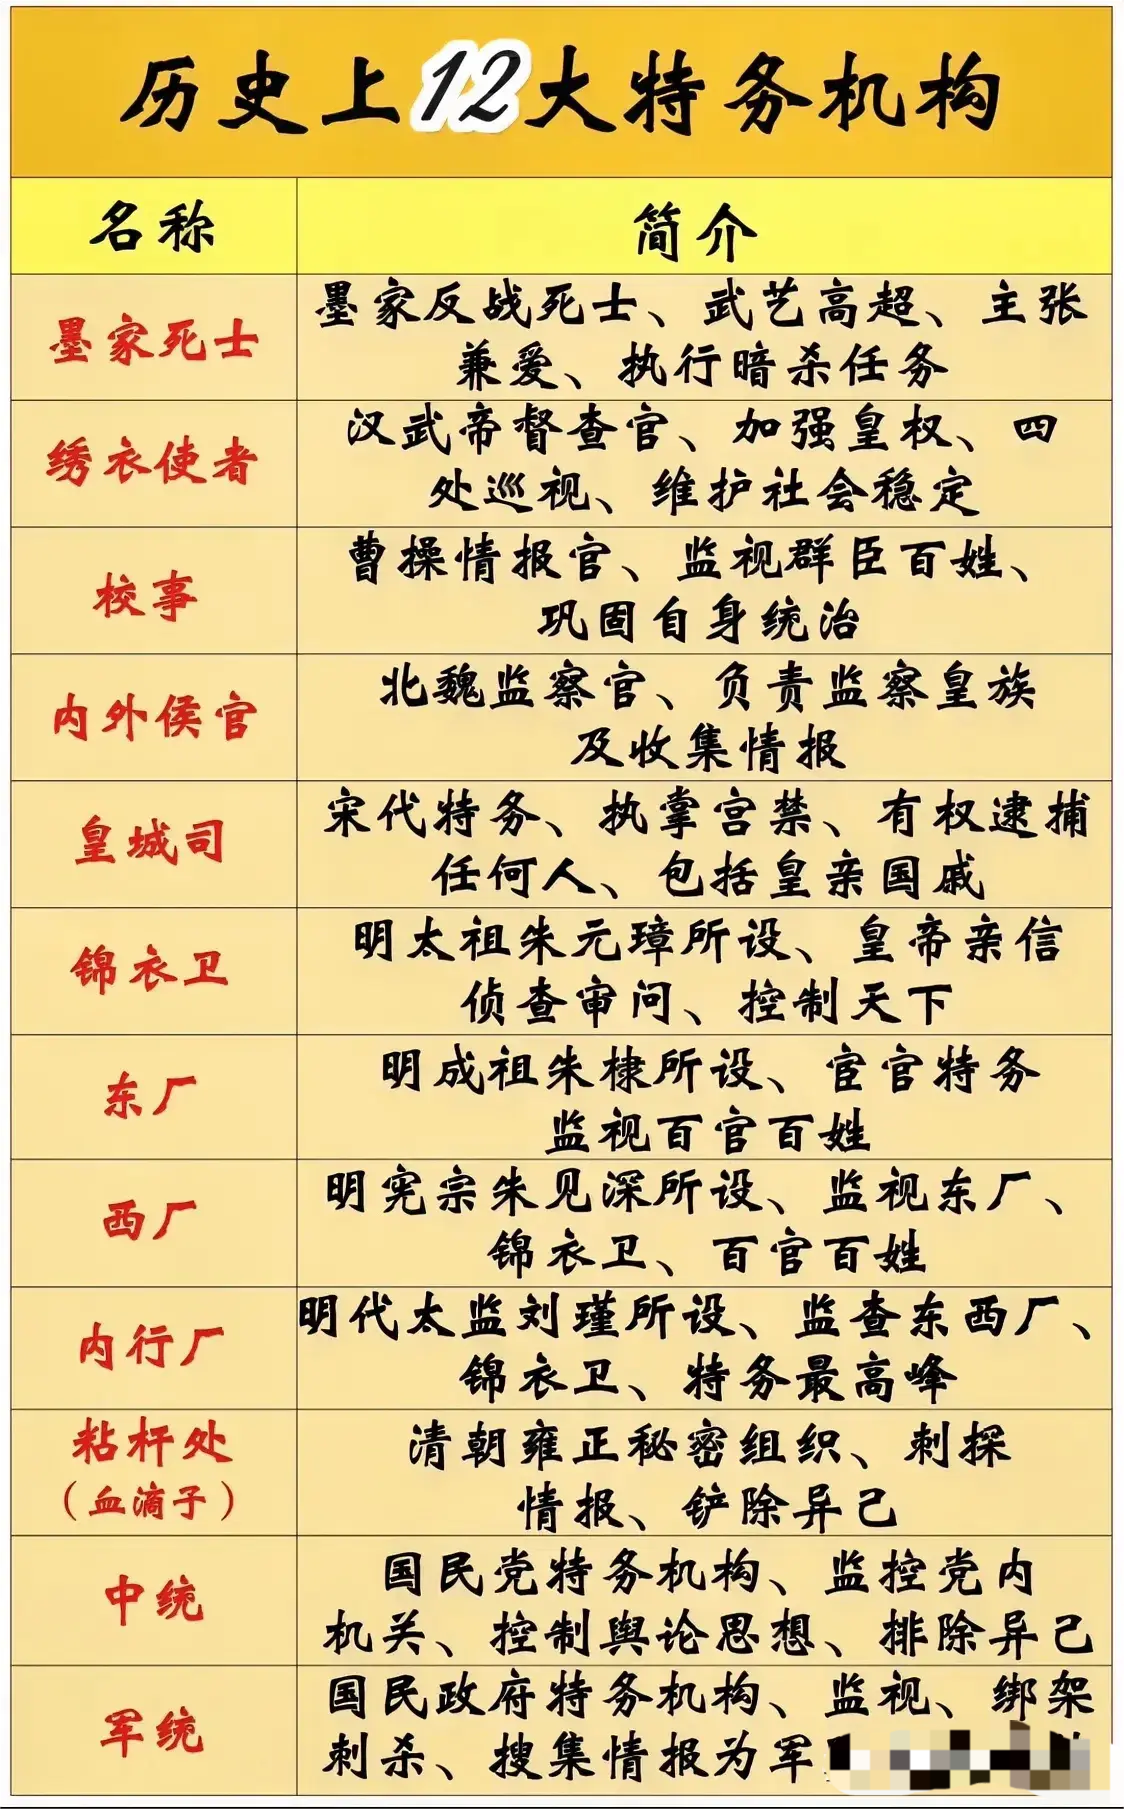 历史上12大特务机构
名称
简介
墨家死士
墨家反战死士、武艺高超、主张
兼爱、执行暗杀任务
绣衣使者
汉武帝督查官、加强皇权、四
处巡视、维护社会稳定
校事
曹操情报官、监视群臣百姓、
巩固自身统治
内外侯官
北魏监察官、负责监察皇族
及收集情报
皇城司
宋代特务、执掌宫禁、有权逮捕
任何人、包括皇亲国戚
锦衣卫
明太祖朱元璋所设、皇帝亲信
侦查审问、控制天下
东厂
明成祖朱棣所设、宦官特务
监视百官百姓
西厂
明宪宗朱见深所设、监视东厂、
锦衣卫、百官百姓
内行厂
明代太监刘瑾所设、监查东西厂、
锦衣卫、特务最高峰
粘杆处
（血滴子）
清朝雍正秘密组织、刺探
情报、铲除异己
中统
国民党特务机构、监控党内
机关、控制舆论思想、排除异己
军统
国民政府特务机构、监视、绑架
刺杀、搜集情报为军